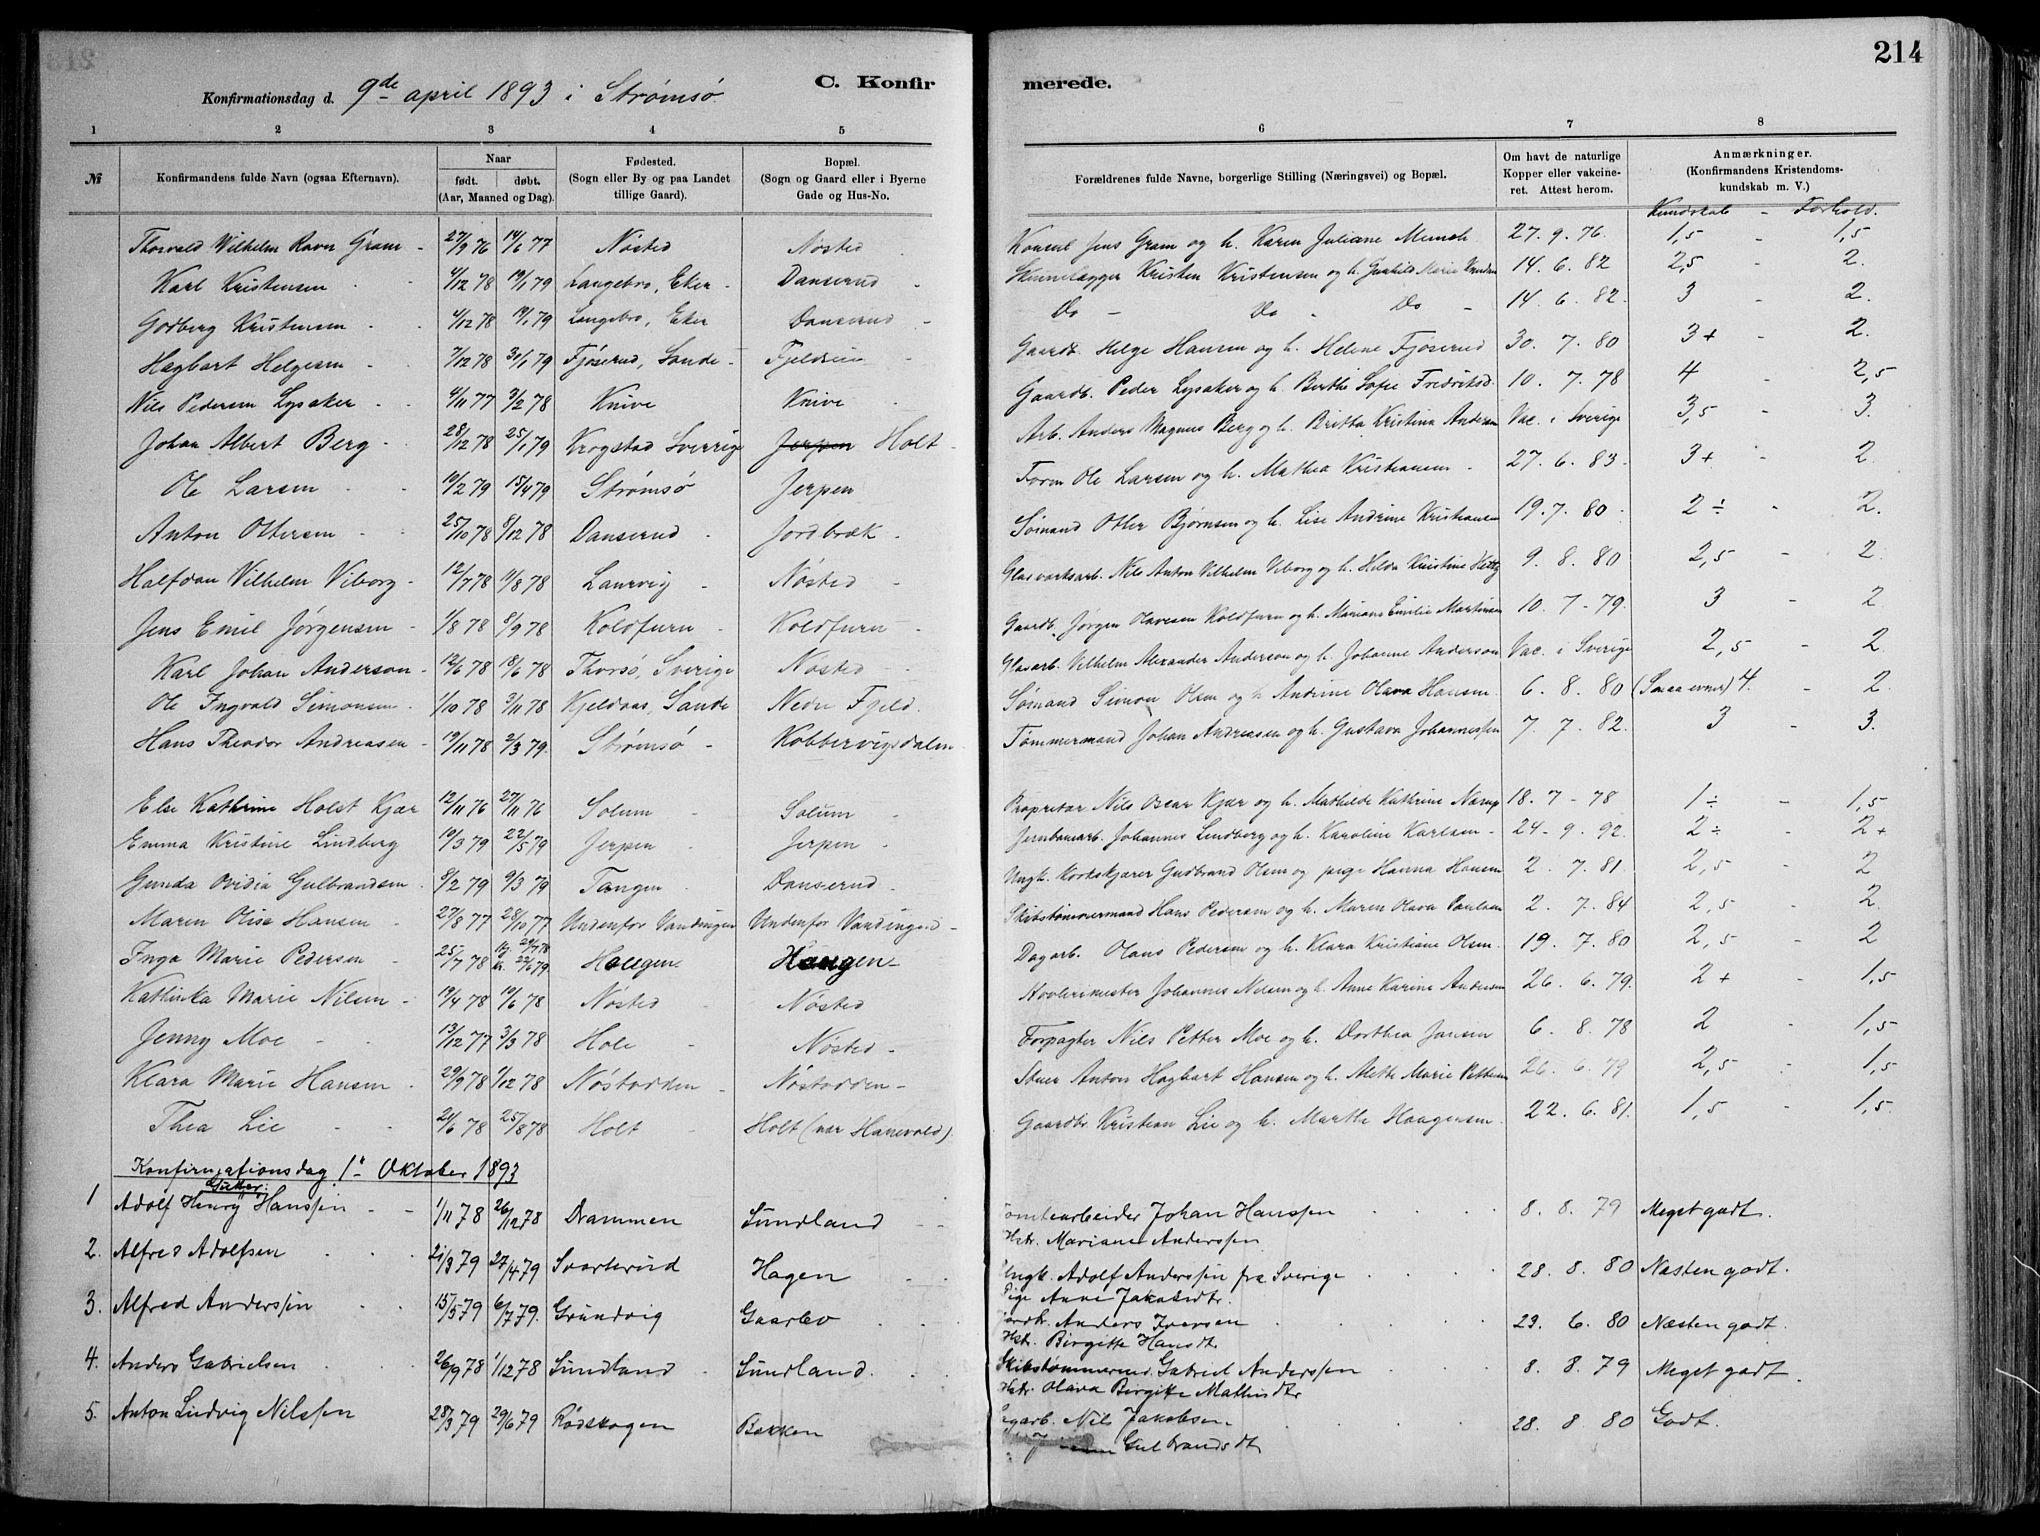 214
Konfirmationsdag d. 9de april 1893 i Strømsø. C. Konfirmerede.
1 2 3 4 5 6 7 8
№ Konfirmandens fulde Navn (ogsaa Efternavn). Naar født. døbt. (Aar, Maaned og Dag). Fødested. (Sogn eller By og paa Landet tillige Gaard). Bopæl. (Sogn og Gaard eller i Byerne Gade og Hus-No. Forældrenes fulde Navne, borgerlige Stilling (Næringsvei) og Bopæl. Om havt de naturlige Kopper eller vakcineret. Attest herom. Anmærkninger. (Konfirmandens Kristendomskundskab m. V.)
Kundskab - Forhold.
Thorvald Vilhelm Ravn Gram - 27/9 76 14/6 77 Nøsted Nøsted Konsul Jens Gram og h. Karen Juliane Munch 27. 9. 76. 1,5 - 1,5
Karl Kristensen 4/12 78 19/1 79 Langebro, Eker - Danserud - Skinnelægger Kristen Kristensen og h. Gunhild Marie 14. 6. 82 2,5 - 2.
Godberg Kristensen 4/12 78 19/1 79 Langebro, Eker Danserud - Do - Do - Do - 14. 6. 82. 3 - 2.
Hagbart Helgesen 7/12 78 30/1 79 Fjøserud, Sande - Gaardb. Helge Hansen og h. Helene Fjøserud 30. 7. 80 3+ - 2.
Nils Pedersen Lysaker 4/11 77 3/2 78 Knive Knive Gaardb. Peder Lysaker og h. Berthe Sofie Fredriksd. 10. 7. 78 4 - 2,5
Johan Albert Berg - 28/12 78 25/1 79 Krogstad Sverrige Jerpen Holt - Arb. Anders Magnus Berg og h. Britta Kristina Andersen Vac. i Sverige 3,5 - 3.
Ole Larsen 19/2 79 15/4 79 Strømsø Jerpen Form Ole Larsen og h. Mathea Kristiansen - 27. 6. 83. 3+ - 2.
Anton Ottersen 25/10 78 8/12 78 Danserud Jordbræk - Sømand Otter Bjørnsen og h. Lise Andrine Kristiansen 19. 7. 80 2 ÷ - 2.
Halfdan Vilhelm Viborg - 12/7 78 11/8 78 Laurvig Nøsted - Glasværksarb. Nils Anton Vilhelm Viborg og h. Hilda Kristine 9. 8. 80 2,5 - 2.
Jens Emil Jørgensen - 1/8 78 8/9 78 Koldfurn Koldfurn - Gaardb. Jørgen Olavesen Koldfurn og h. Mariane Emilie Martinsen 10. 7 - 79. 3 - 2
Karl Johan Anderson - 12/6 78 18/6 78 Thorsø, Sverige Nøsted - Glasarb. Vilhelm Alexander Anderson og h. Johanne Anderson Vac. i Sverige 2,5 - 2.
Ole Ingvald Simonsen - 1/10 78 3/11 78 Kjeldaas, Sande Nedre Fjeld. Sømand Simon Olsen og h. Andrine Olava Hansen. 6. 8. 80 (Smaa evner) 4. - 2.
Hans Theodor Andreasen - 19/11 78 2/3 79. Strømsø - Kobbervigsdalen Tømmermand Johan Andreasen og h. Gustava Johannessen 7. 7. 82. 3 - 3.
Else Kathrine Holst Kjær 12/11 76 27/11 76 Solum Solum - Proprietær Nils Oscar Kjær og h. Mathilde Kathrine 18. 7 - 78 1 ÷ - 1,5
Emma Kristine Lindberg 19/3 79 22/5 79 Jerpen Jerpen - Jernbanearb. Johannes Lindberg og h. Karoline Karlsen - 24 - 9. 92. 2 ÷ - 2+
Gunda Ovidia Gulbrandsen. 8/2 79 9/3 79 Tangen - Danserud - Ungk. Korkskjærer Gudbrand Olsen og pige Hanna Hansen 2. 7. 81. 2,5 - 2
Maren Olise Hansen - 27/8 77 28/10 77 Undenfor Vandingen Undenfor Vandingen - Skibstømmermand Hans Pedersen og h. Maren Olava Paulsen 2. 7. 84 2,5 - 2.
Inga Marie Pedersen - 25/7 78 22/6 79 Haugen Haugen - Dagarb. Olaus Pedersen og h. Klara Kristiane Olsen. 19. 7. 80 2,5 - 2
Kathinka Marie Nilsen - 19/4 78 10/6 78 Nøsted Nøsted Høvlerimester Johannes Nilsen og h. Anne Karine Andersen 26. 6. 79. 2+ - 1,5
Jenny Moe - 13/12 77 3/3 78 Hole - Nøsted - Forpagter Nils Petter Moe og h. Dorthea Jansen 6. 8. 78 2 - 1,5
Klara Marie Hansen. 29/9 78 1/12 78 Nøstodden - Nøstodden - Stuer Anton Hagbart Hansen og h. Mette Marie Pettersen 26. 6. 79 2,5 - 1,5
Thea Lie 21/6 78 25/8 78 Holt - Holt (nær Hanevold). Gaardbr. Kristian Lie og h. Marthe Haagensen. 22. 6. 81. 1,5 - 1,5
Konfirmationsdag 1ste Oktober 1893
Gutter:
1 Adolf Henry Hanssen 1/11 78 26/12 78 Drammen Sundland Tomtearbeider Johan Hanssen 8. 8. 79 Meget godt.
Hstr. Mariane Anderssen
2. Alfred Adolfsen 21/3 79 27/4 79 Svarterud Hagen Ungk. Adolf Anderssen fra Sverige 28. 8. 80 Næsten godt.
Pige Anne Jakobsdtr.
3. Alfred Anderssen 15/5 79 6/7 79. Grundvig Gaarlev Gaardbr. Anders Iversen 23. 6. 80 Næsten godt.
Hstr. Birgitte Hansdtr.
4. Anders Gabrielsen 26/9 78 1/12 78 Sundland Sundland. Skibstømmermd. Gabriel Anderssen 8. 8. 79 Meget godt.
Hstr. Olava Birgitte Mathisdtr
5. Anton Ludvig Nilssen 28/3 79 29/6 79 Rødskogen Bakken Nils Jakobsen 28. 8. 80 Godt.
Gulbrandsdt